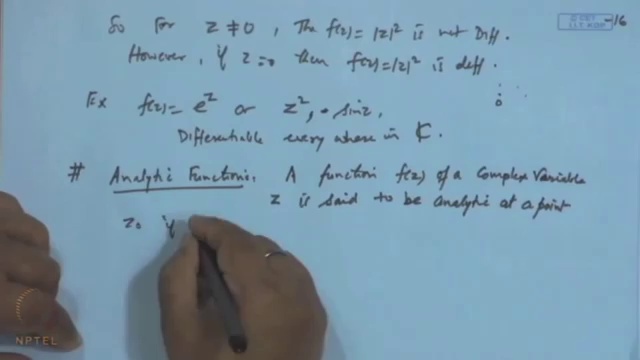 So For z ≠ 0, The f(z) = |z|² is not Diff.
However, if z = 0 then f(z) = |z|² is diff.
0
Ex f(z) = e^z or z², sin z,
Differentiable every where in ℂ.
# Analytic Functions. A function f(z) of a Complex Variable
z is said to be analytic at a point
z₀ if
NPTEL